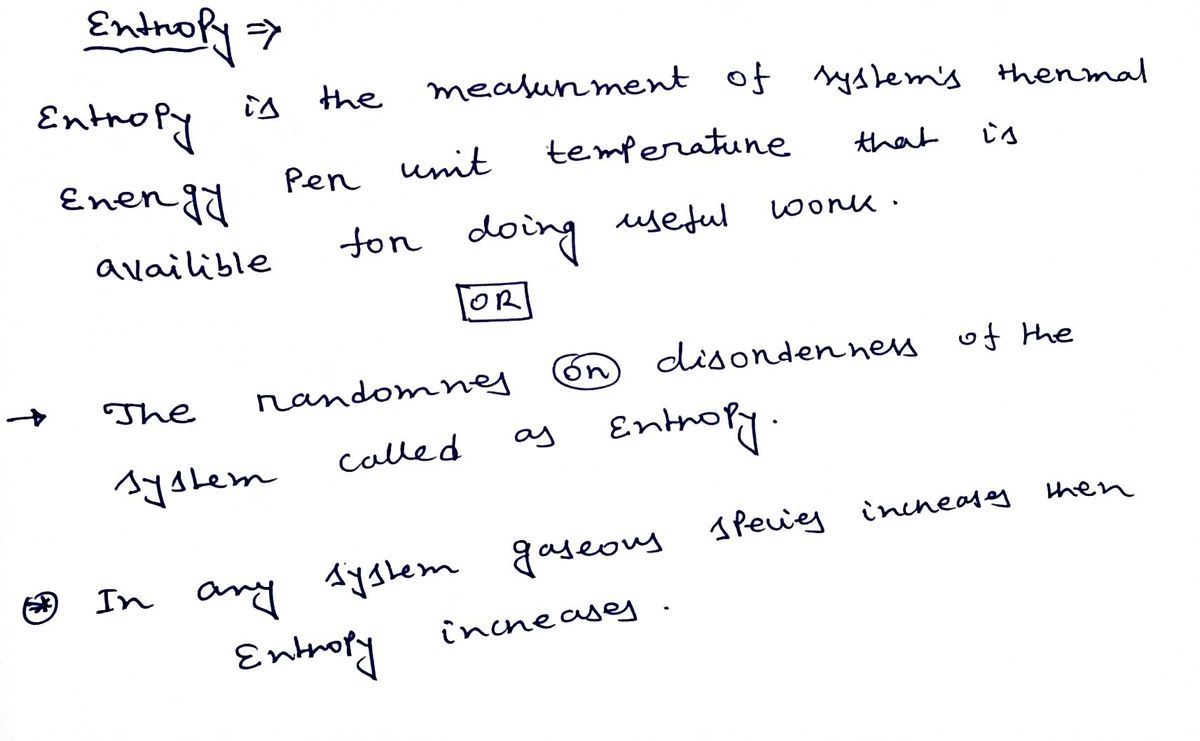 Entropy ⇒
Entropy is the measurment of system's thermal
Energy Per unit temperature that is
availible for doing useful work.
OR
→ The randomnes or disorderness of the
system called as Entropy.
⊛ In any system gaseous species increases then
Entropy increases.